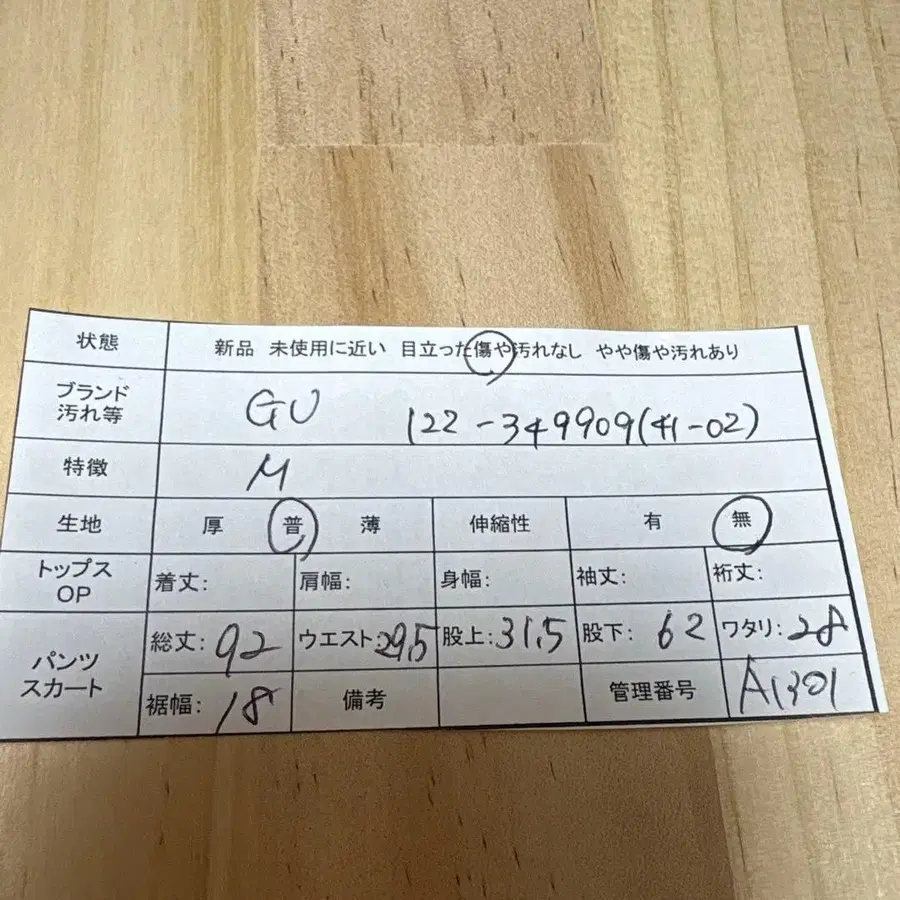 状態 新品 未使用に近い 目立った傷や汚れなし やや傷や汚れあり
ブランド
汚れ等 GU 122-349909(41-02)
特徴 M
生地 厚 普 薄 伸縮性 有 無
トップス
OP 着丈: 肩幅: 身幅: 袖丈: 裄丈:
パンツ
スカート 総丈: 92 ウエスト: 29.5 股上: 31.5 股下: 62 ワタリ: 28
裾幅: 18 備考 管理番号 A1301